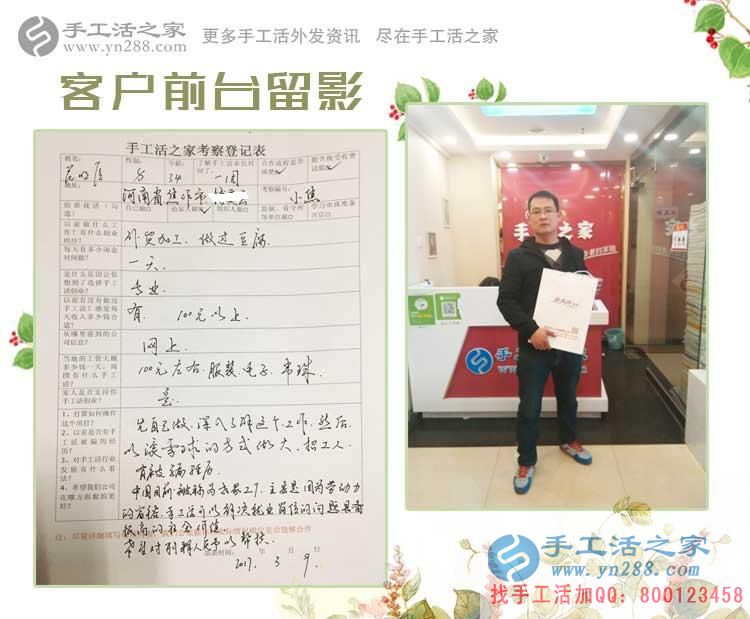 手工活之家
www.yn288.com
更多手工活外发资讯 尽在手工活之家
客户前台留影
手工活之家考察登记表
姓名:
性别:
年龄:
了解手工活来长时间了:
合作流程是否清楚
能否接受收费试做
34
一周
地址:
河南省焦作市
考察编号:
小焦
给谁说话(勾选)
自己做
给家人做
组织人做
监狱、看守所等单位做
学习串珠准备开店
以前做什么工作?有什么创业经历?
外贸加工、做过豆腐
每天有多少闲余时间做?
一天
是什么原因让你想到了选择手工活创业?
专业
以前有没有做过手工活?感觉每天收入多少钱合适?
有. 100元以上
从哪里看到的公司信息?
网上
当地的工资大概多少钱一天,周围有什么手工活?
100元左右.服装、电子、串珠
家人是否支持你手工活创业?
是
1、打算如何操作这个项目?
2、以前是否有手工活被骗的经历?
3、对手工活行业发展有什么看法?
4、希望我们公司在哪方面做的更好?
先自己做,深入了解这个工作,然后
以滚雪球的方式做大,招工人
有被骗经历
中国目前被称为世界工厂,主要是因为劳动力
很高的社会价值
填表时间: 年 月 日
2017. 3 9.
手工活之家
手工活之家
手工活之家
www.yn288.com
找手工活加QQ:800123458